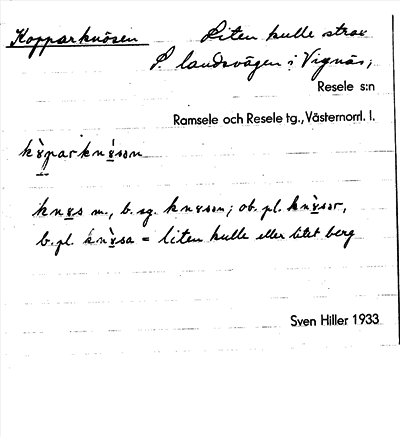 Kopparknösen Liten kulle strax
S. landsvägen i Vignäs,
Resele s:n
Ramsele och Resele tg., Västernorrl. l.
kɤ̀parknɤ̀sɔn
knɤs m., b. sg. knɤsɔn; ob. pl. knɤ̀sɔr,
b. pl. knɤ̀sa = liten kulle eller litet berg
Sven Hiller 1933